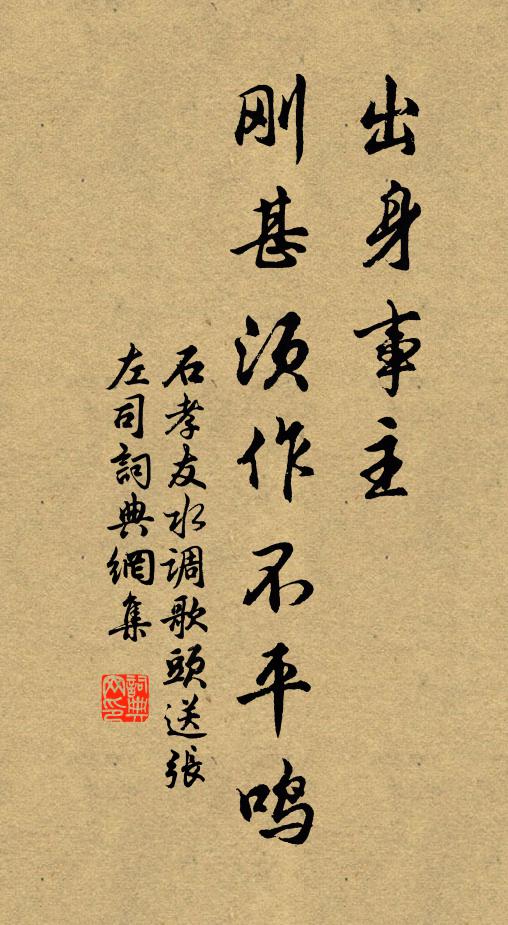 出身事主
刚甚须作不平鸣
石孝友水调歌頭送張
左司詞典網集
詞典網印